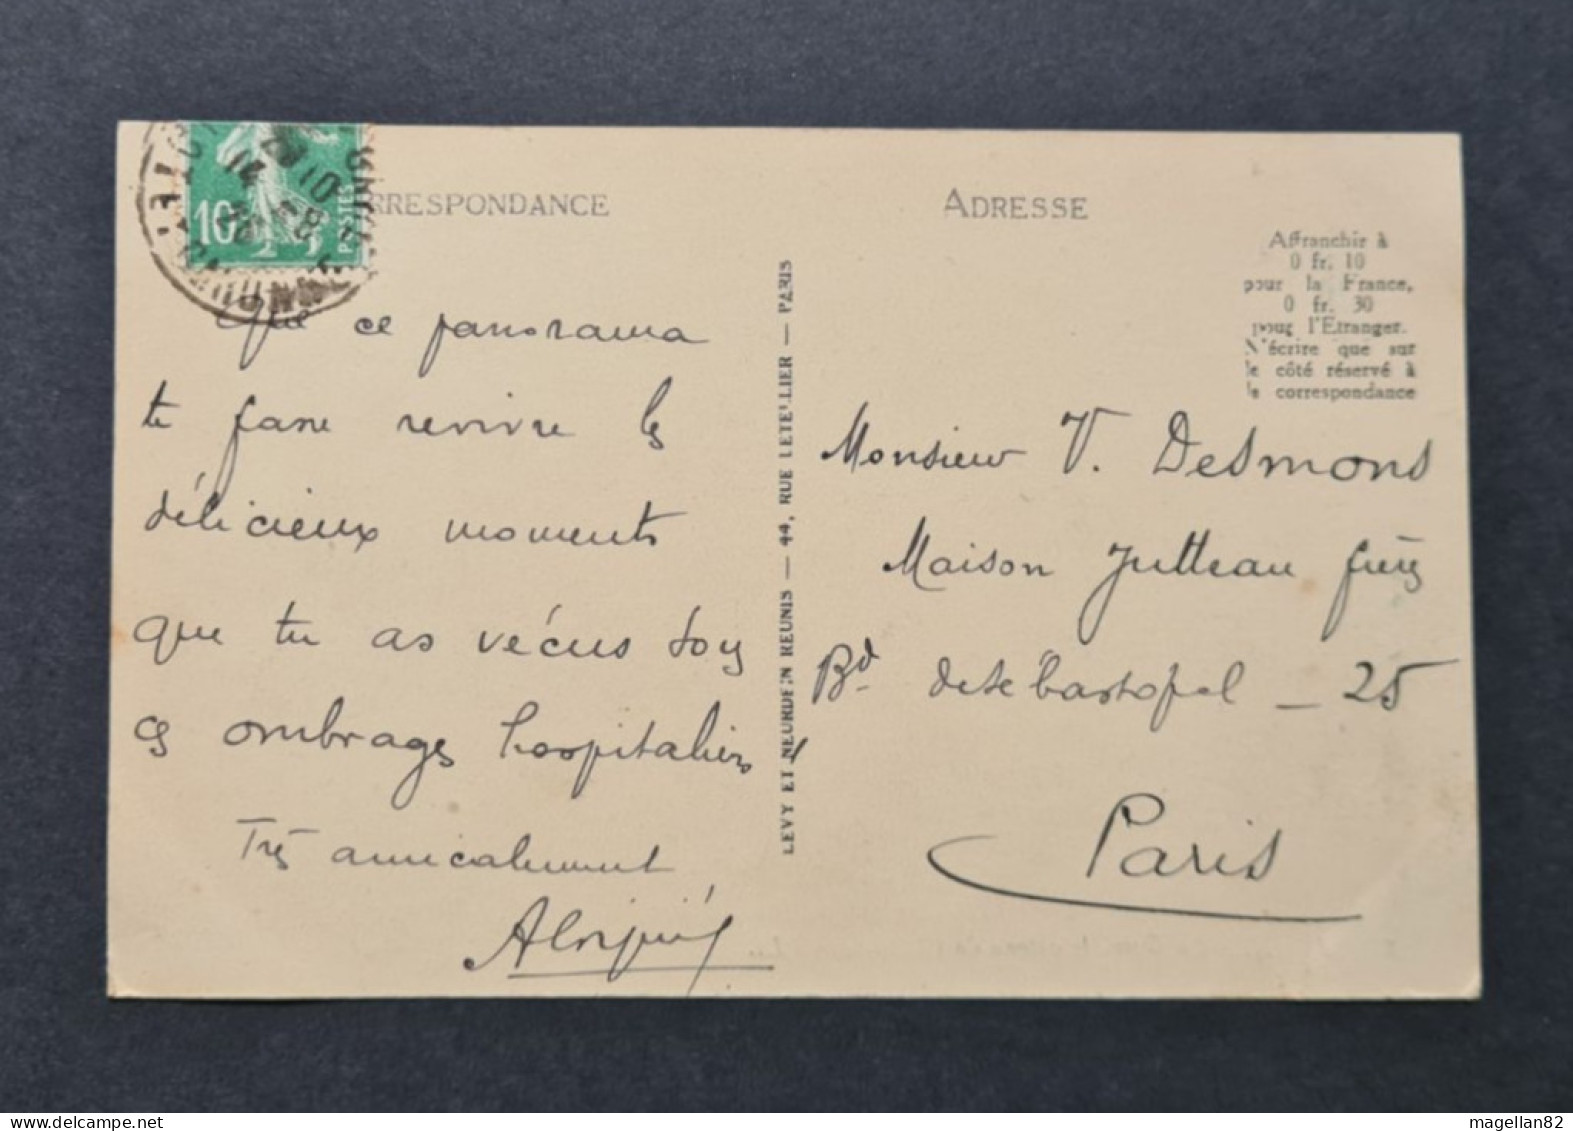 10
POSTES
RRESPONDANCE
Que ce panorama
te fasse revivre les
délicieux moments
que tu as vécus sous
ces ombrages hospitaliers
Très amicalement
LEVY ET NEURDEIN REUNIS — 44, RUE LETELLIER — PARIS
ADRESSE
Affranchir à
0 fr. 10
pour la France,
0 fr. 30
pour l'Etranger.
N'écrire que sur
le côté réservé à
la correspondance
Monsieur V. Desmons
Maison Jutteau frères
Bd de Sébastopol _ 25
Paris
magellan82